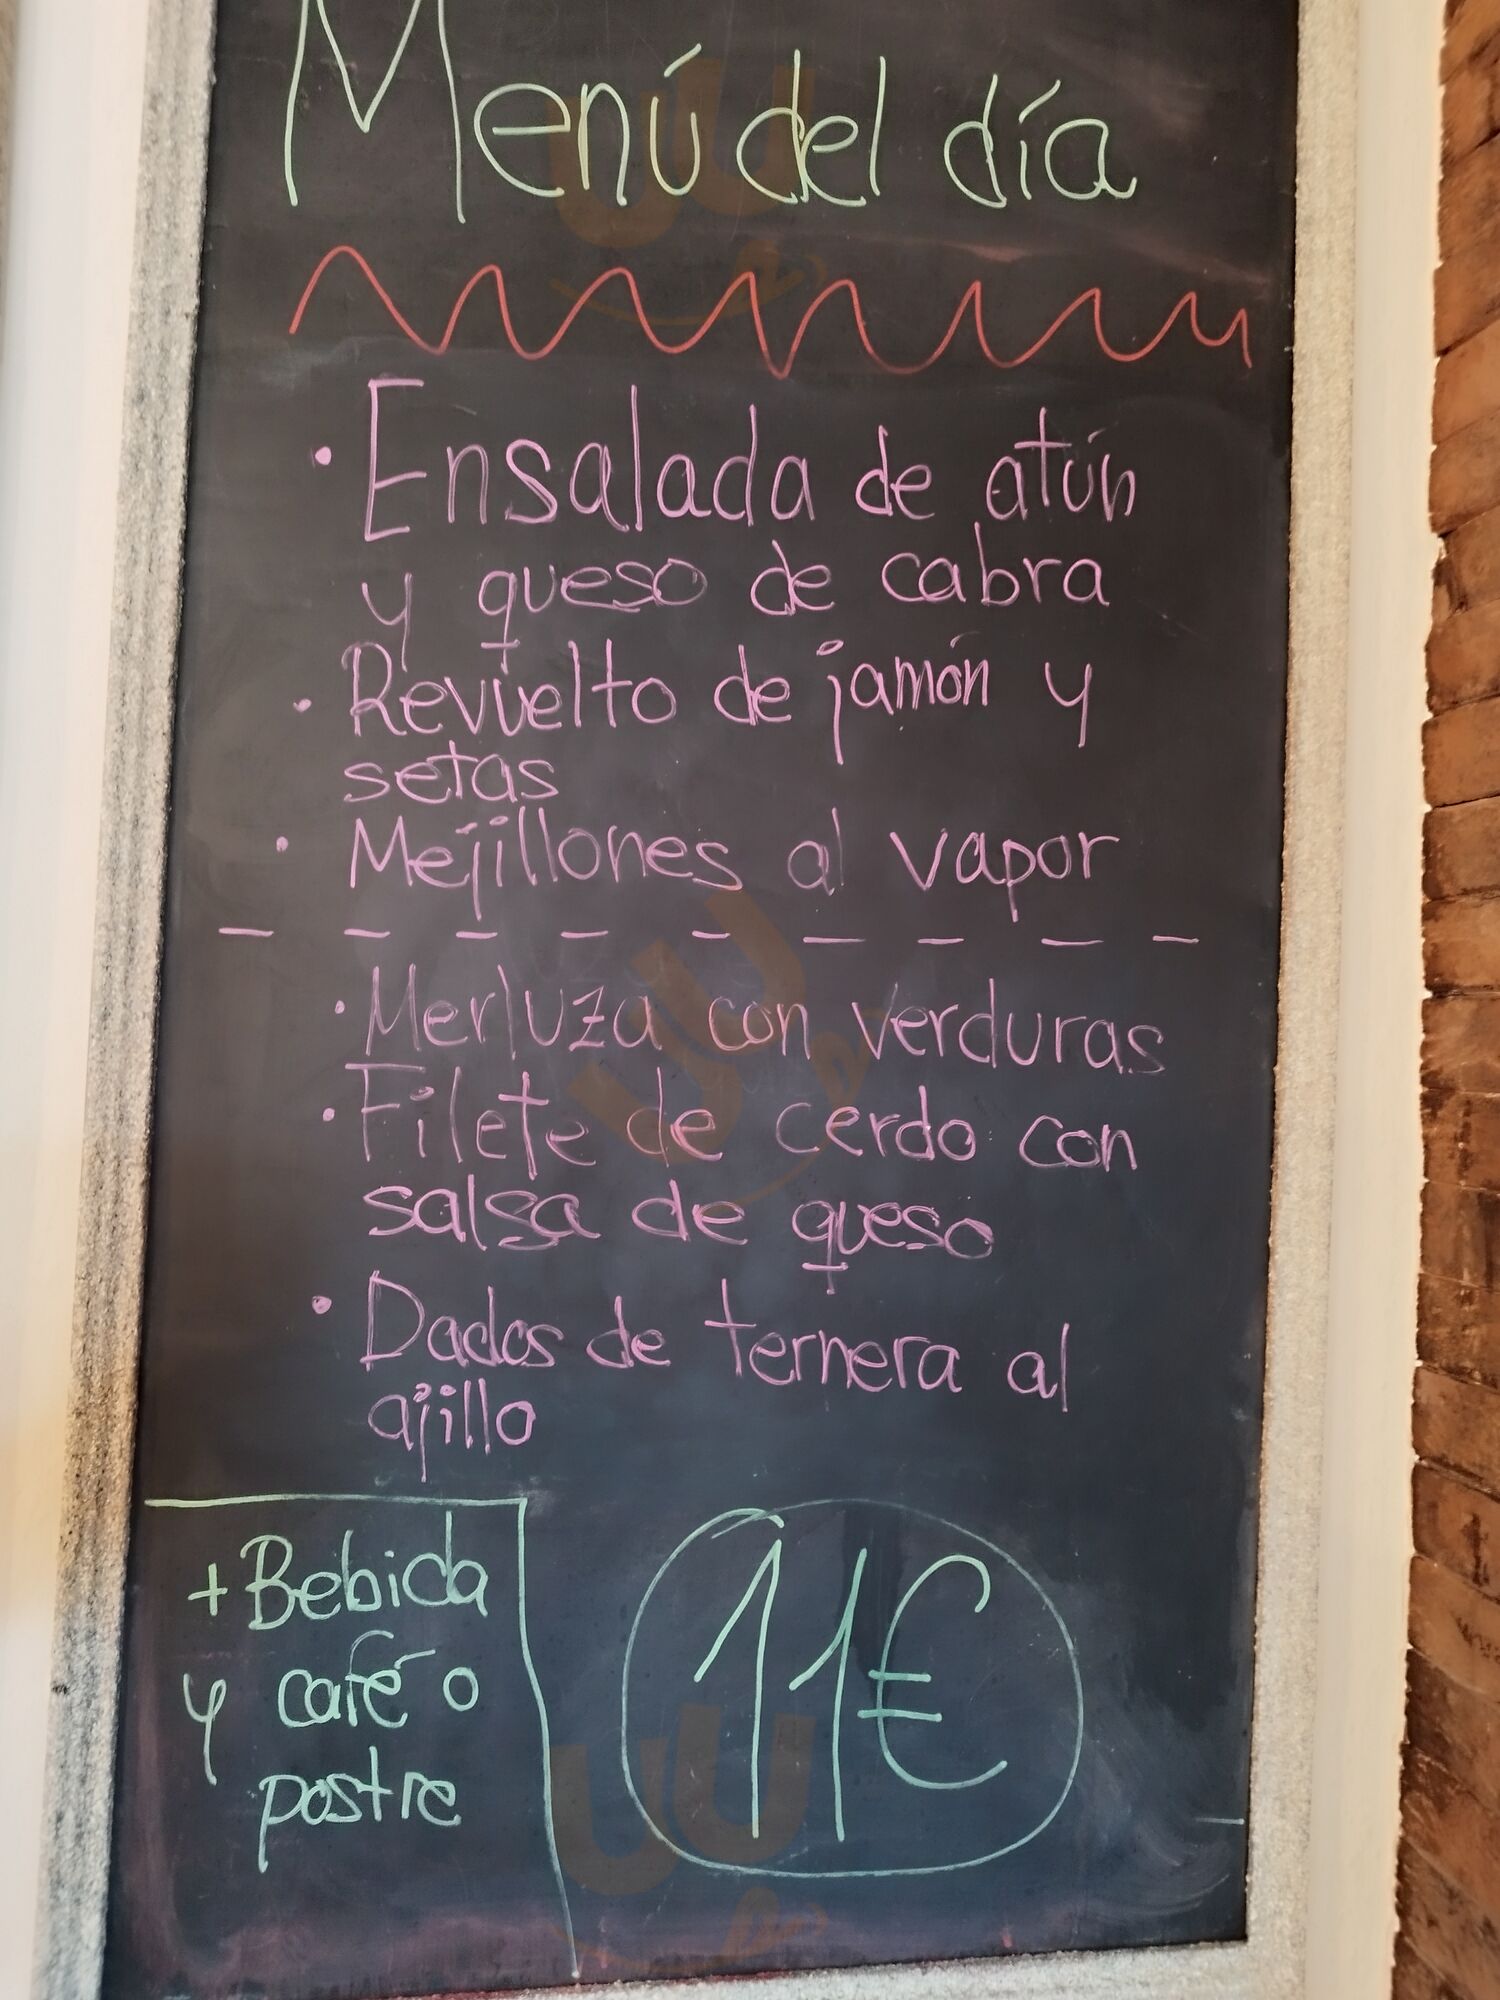 Menú del día
· Ensalada de atún
y queso de cabra
· Revuelto de jamón y
setas
· Mejillones al vapor
- - - - - - - - -
· Merluza con verduras
· Filete de cerdo con
salsa de queso
· Dados de ternera al
ajillo
+ Bebida
y café o
postre
11€